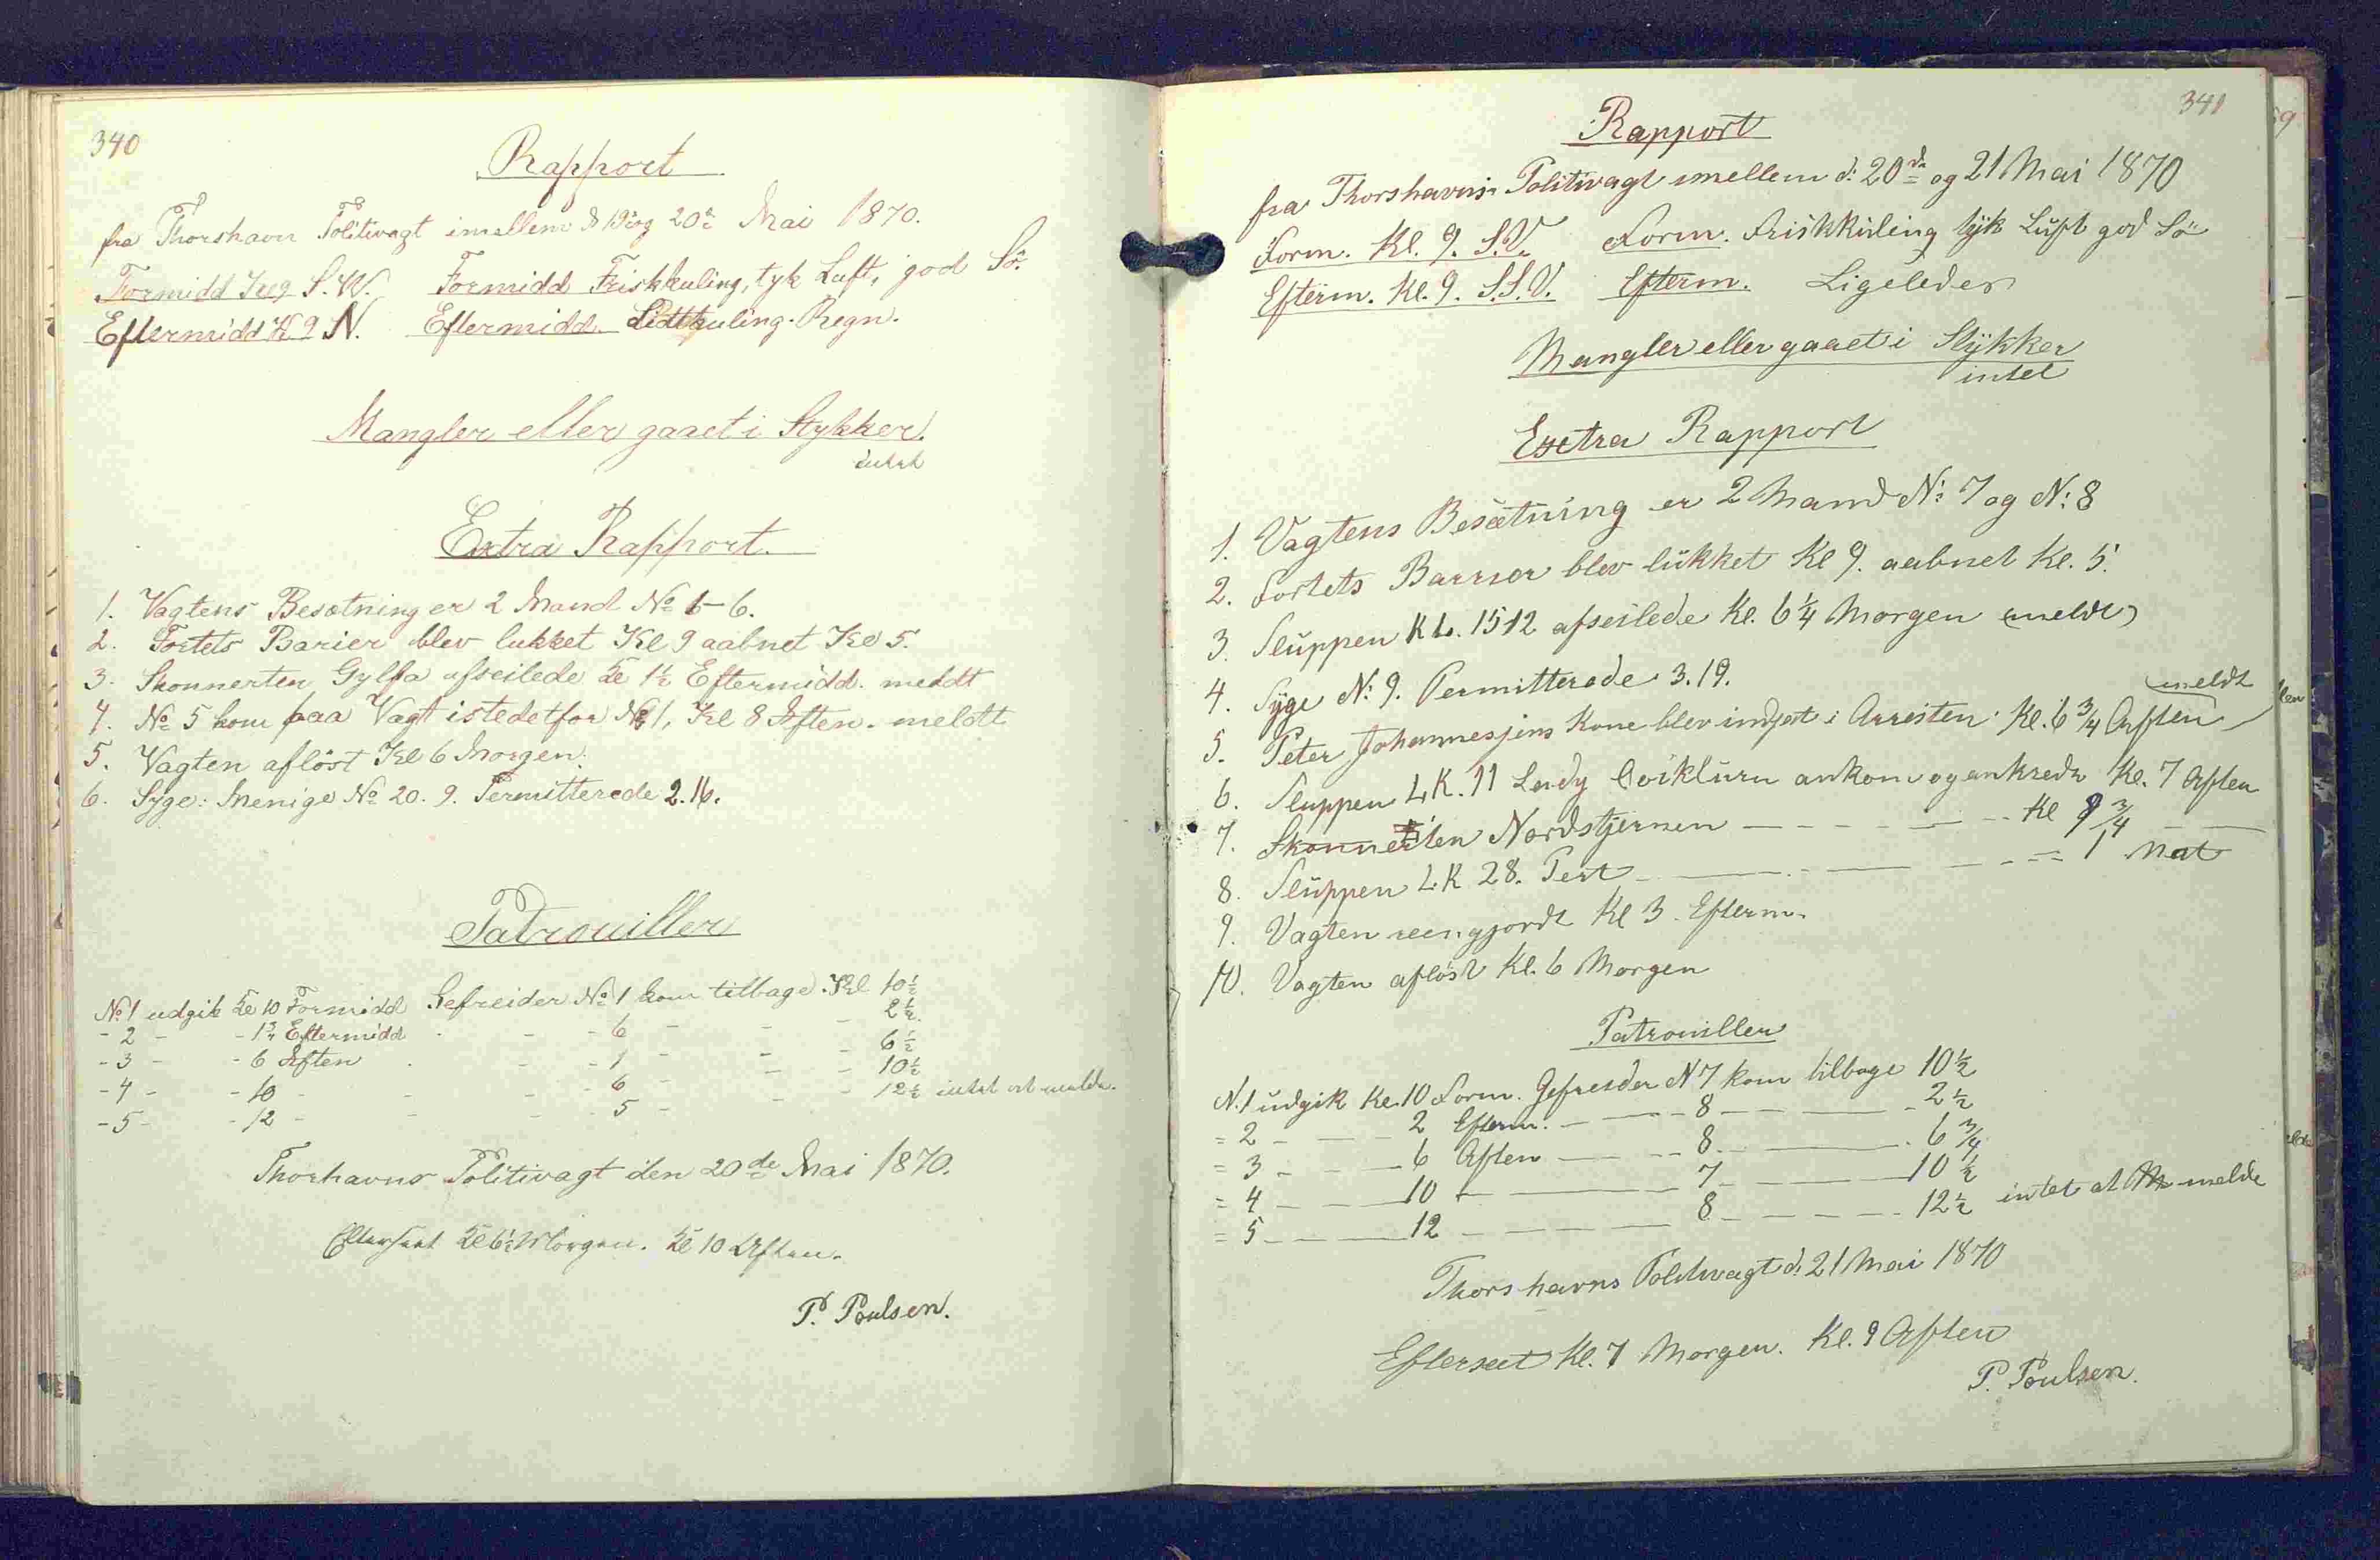 340
Rapport
fra Thorshavn Politivagt imellem d 19 og 20de Mai 1870.
Formidd Kl 9 S.W. Formidd Friskkuling, tyk Luft, god Sö.
Eftermidd Kl 9 N. Eftermidd Lidtkuling. Regn.
Mangler eller gaaet i Stykker.
intet
Extra Rapport.
1. Vagtens Besætning er 2 Mand No 1-6.
2. Fortets Barier blev lukket Kl 9 aabnet Kl 5.
3. Skonnerten Gylfa afseilede Kl 1½ Eftermidd. meldt
4. No 5 kom paa Vagt istedetfor No 1, Kl 8 Aften. meldt
5. Vagten aflöst Kl 6 Morgen.
6. Syge: Menige No 20. 9. Permitterede 2.16.
Patrouiller
No 1 udgik Kl 10 Formidd Gefreider No 1 kom tilbage Kl 10½
- 2 - - 1¾ Eftermidd - - 6 - - - 2½
- 3 - - 6 Aften - - 1 - - - 6½
- 4 - - 10 - - - 6 - - - 10½
- 5 - - 12 - - - 5 - - - 12½ intet at melde.
Thorhavns Politivagt den 20de Mai 1870.
Efterseet Kl 6½ Morgen. Kl 10 Aften.
P. Poulsen.
341
Rapport
fra Thorshavns Politivagt imellem d: 20de og 21 Mai 1870
Form. Kl. 9. S.V. Form. Friskkuling tyk Luft god Sö
Efterm. Kl. 9. S.S.V. Efterm. Ligeledes
Mangler eller gaaet i Stykker
intet
Exetra Rapport
1. Vagtens Besætning er 2 Mand No: 7 og No: 8
2. Fortets Barrier blev lukket Kl 9. aabnet Kl. 5.
3. Sluppen K L. 1512 afseilede Kl. 6¼ Morgen (meldt)
4. Syge No: 9. Permitterede 3.19.
meldt
5. Peter Johannesjens Kone blev indsat i Arresten Kl. 6¾ Aften
6. Sluppen L K. 11 Lady ankom og ankrede Kl. 7 Aften
7. Skonnerten Nordstjernen - - - - - Kl 9¾ - -
8. Sluppen L.K 28. Pert - - - - - 1 Nat
9. Vagten reengjordt Kl 3 Efterm.
10. Vagten aflöst Kl. 6 Morgen
Patrouiller
N. 1 udgik Kl. 10 Form. Gefreider N 7 kom tilbage 10½
= 2 - - 2 Efterm. - - - 8 - - - 2½
= 3 - - 6 Aften - - - 8 - - - 6¾
= 4 - - 10 - - - 7 - - - 10½
= 5 - - 12 - - - 8 - - - 12½ intet at melde
Thorshavns Politivagt d: 21 Mai 1870
Efterseet Kl. 7 Morgen. Kl. 9 Aften
P. Poulsen.